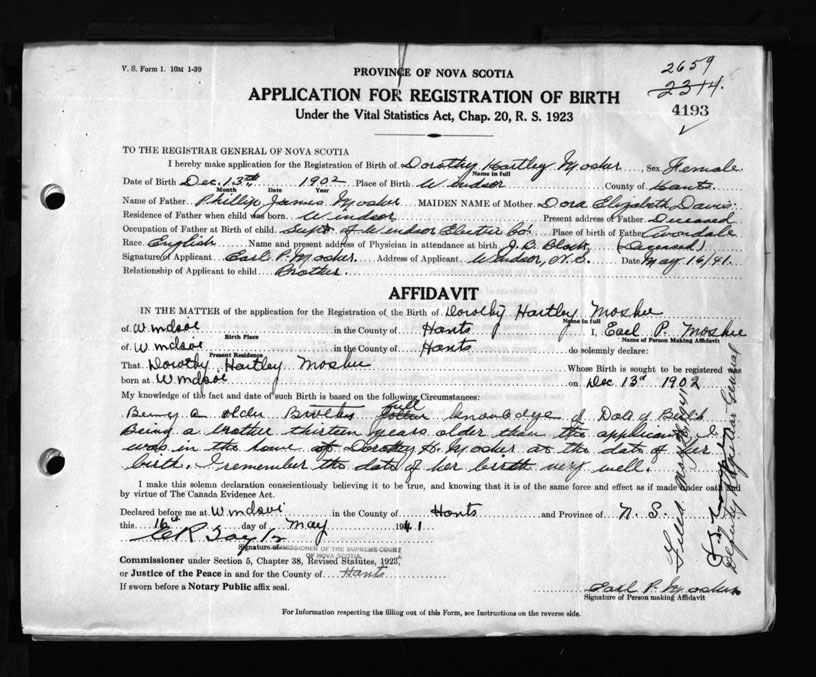 V. S. Form 1. 10M 1-39
2659
2314.
4193
PROVINCE OF NOVA SCOTIA
APPLICATION FOR REGISTRATION OF BIRTH
Under the Vital Statistics Act, Chap. 20, R. S. 1923
TO THE REGISTRAR GENERAL OF NOVA SCOTIA
I hereby make application for the Registration of Birth of Dorothy Hartley Mosher, Sex Female
Name in full
Date of Birth Dec. 13th 1902 Place of Birth Windsor County of Hants
Month Date Year
Name of Father Phillip James Mosher MAIDEN NAME of Mother Dora Elizabeth Davis
Residence of Father when child was born Windsor Present address of Father Deceased
Occupation of Father at Birth of child Supt of Windsor Electric Co. Place of birth of Father Avondale
Race English Name and present address of Physician in attendance at birth J. B. Black (Deceased)
Signature of Applicant Earl P. Mosher Address of Applicant Windsor, N.S. Date May 16/41.
Relationship of Applicant to child Brother.
AFFIDAVIT
IN THE MATTER of the application for the Registration of the Birth of Dorothy Hartley Mosher
Name in full
of Windsor in the County of Hants I, Earl P. Mosher
Birth Place Name of Person Making Affidavit
of Windsor in the County of Hants do solemnly declare:
Present Residence
That Dorothy Hartley Mosher Whose Birth is sought to be registered was
born at Windsor on Dec 13th 1902
My knowledge of the fact and date of such Birth is based on the following Circumstances:
Being a older Brother full knowledge of Date of Birth
Being a brother thirteen years older than the applicant, I
was in the home of Dorothy H. Mosher at the date of her
birth. I remember the date of her birth very well.
I make this solemn declaration conscientiously believing it to be true, and knowing that it is of the same force and effect as if made under oath and
by virtue of The Canada Evidence Act.
Declared before me at Windsor in the County of Hants and Province of N. S.
this 16th day of May 1941
Signature of
COMMISSIONER OF THE SUPREME COURT
OF NOVA SCOTIA
Commissioner under Section 5, Chapter 38, Revised Statutes, 1923,
or Justice of the Peace in and for the County of Hants
If sworn before a Notary Public affix seal.
Earl P. Mosher
Signature of Person making Affidavit
For Information respecting the filling out of this Form, see Instructions on the reverse side.
Deputy Registrar General